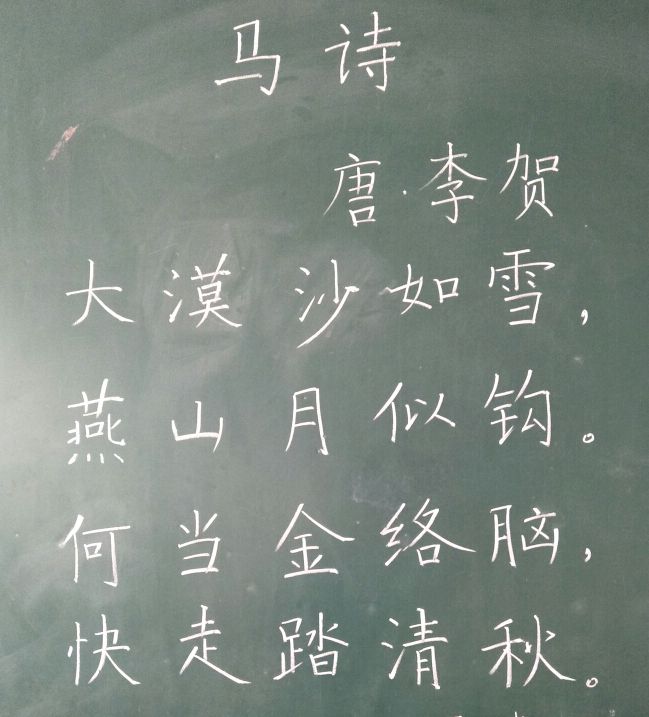 马诗
唐·李贺
大漠沙如雪，
燕山月似钩。
何当金络脑，
快走踏清秋。